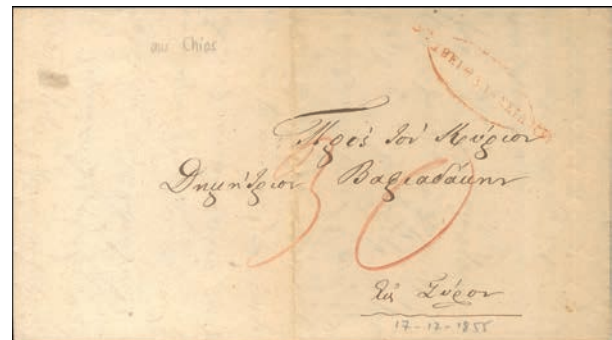 aus Chios
Πρός τον Κύριον
Δημήτριον Βαφιαδάκην
30
Εις Σύρον
17-12-1855